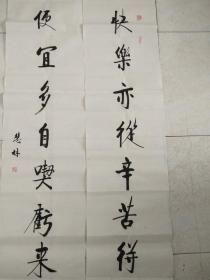 快樂亦從辛苦得
便宜多自喫虧来